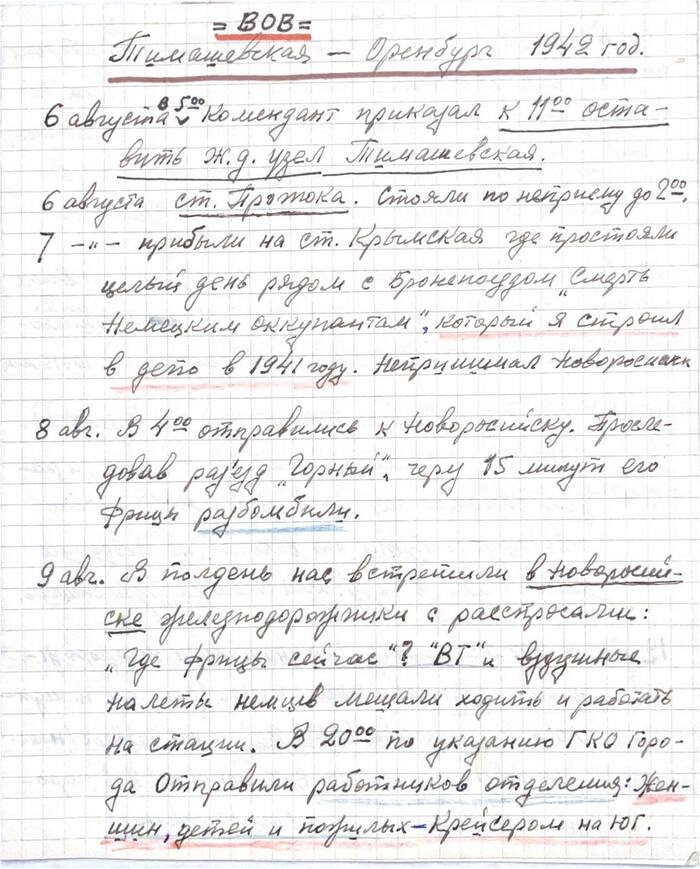 = ВОВ =
Тимашевская – Оренбург 1942 год.
6 августа в 5⁰⁰ Комендант приказал к 11⁰⁰ оста-
вить ж.д. узел Тимашевская.
6 августа ст. Протока. Стояли по неприему до 2⁰⁰.
7 –"– прибыли на ст. Крымская где простояли
целый день рядом с Бронепоездом „Смерть
Немецким оккупантам", который я строил
в депо в 1941 году. Непринимал Новоросийск
8 авг. В 4⁰⁰ отправились к Новоросийску. Просле-
довав разъезд „Горный", черз 15 минут его
Фрицы разбомбили.
9 авг. В полдень нас встретили в Новоросий-
ске железнодорожники с расспросами:
„Где фрицы сейчас"? "ВТ" и воздушные
налеты немцев мешали ходить и работать
на стации. В 20⁰⁰ по указанию ГКО Горо-
да Отправили работников отделения: Жен-
щин, детей и пожилых – Крейсером на юг.